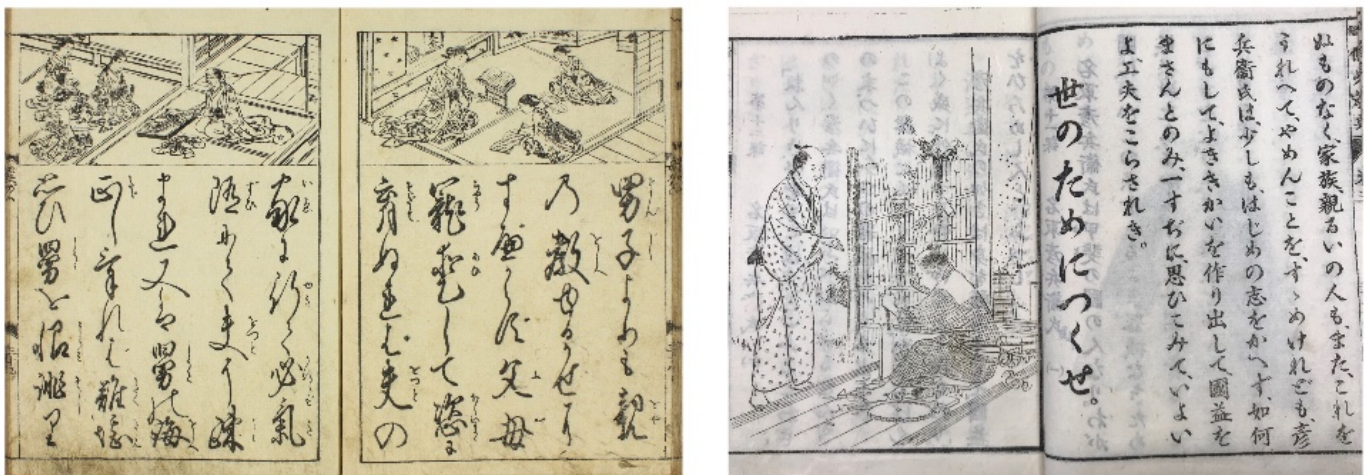 男子よりも親
乃教ゆるかせに
す可らず父母
寵愛して恣に
育ぬれば夫の
家に行て必氣
随にて夫に疎
まれ又は舅の誨
正しければ難堪
思ひ舅を恨誹り
ぬものなく、家族親るいの人も、また、これを
うれへて、やめんことを、すゝめけれども、彦
兵衞氏は、少しも、はじめの志をかへず、如何
にもして、よききかいを作り出して、國益を
まさんとのみ、一すぢに思ひこみて、いよい
よ、工夫をこらされき。
世のためにつくせ。